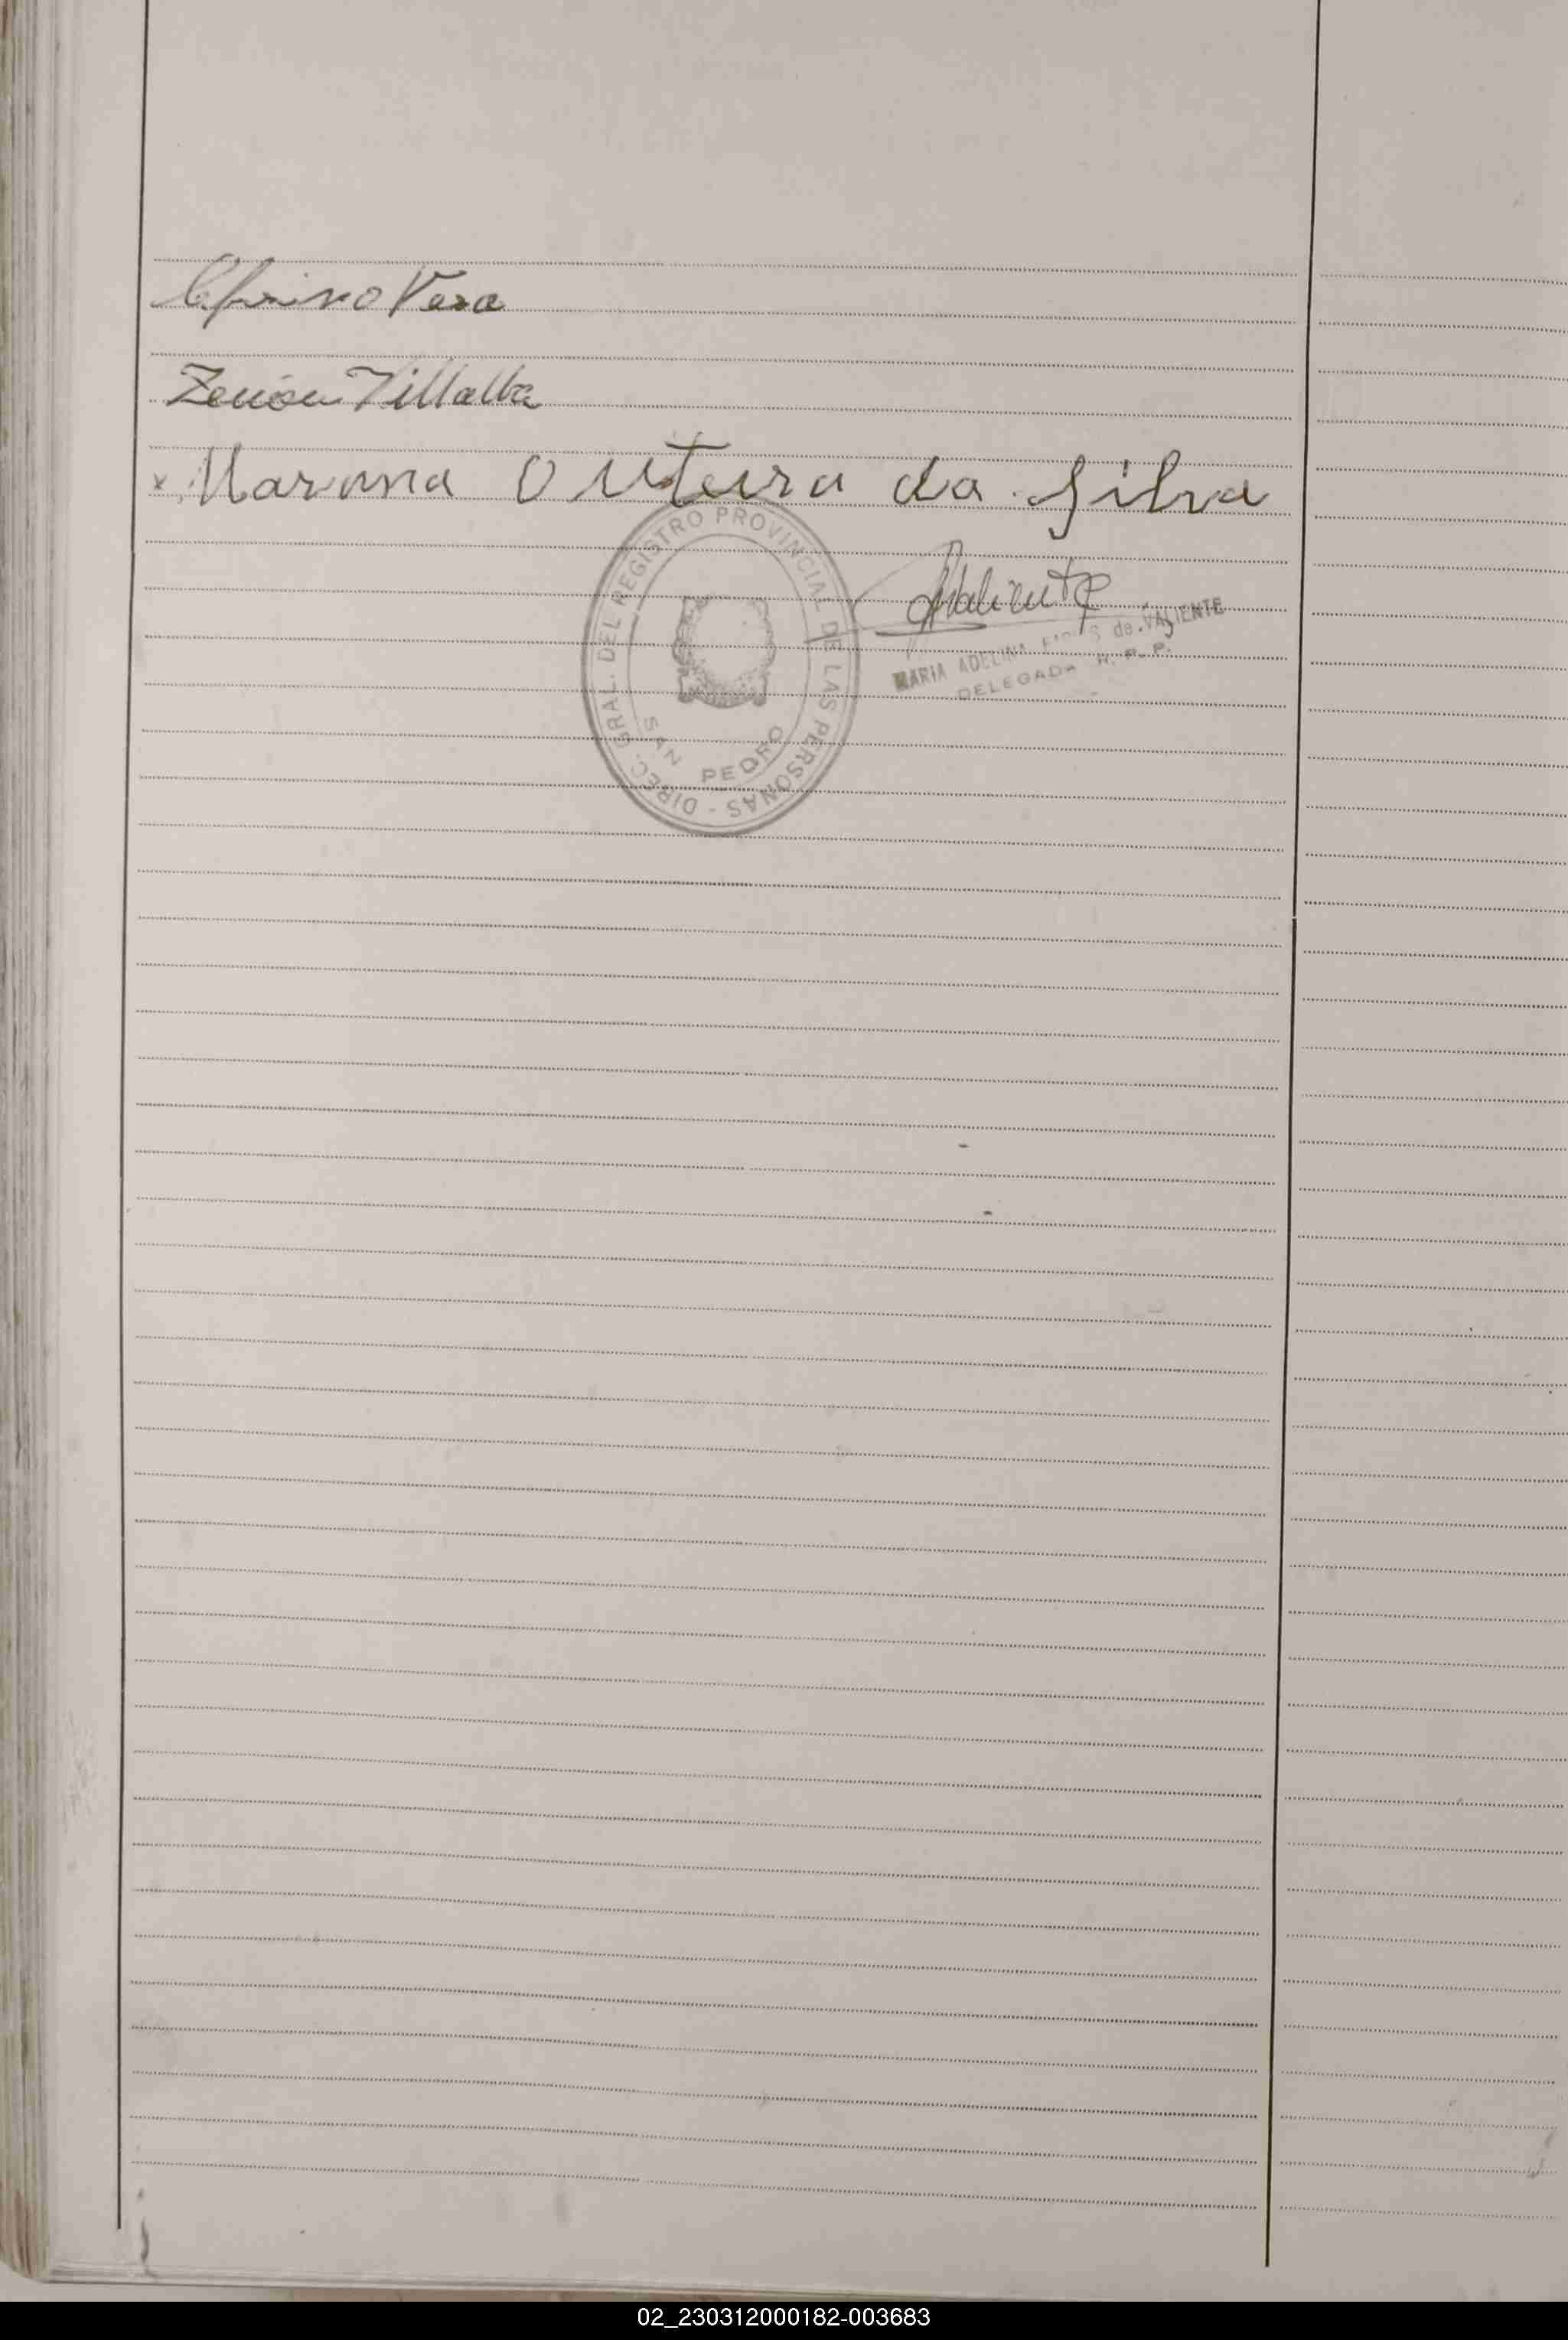 Vera
Zenón Villalba
x Marina Outeira da Silva
DIREC. GRAL. DEL REGISTRO PROVINCIAL DE LAS PERSONAS -
SAN PEDRO
Valiente
MARIA ADELINA de VALIENTE
DELEGADA R. P. P.
02_230312000182-003683